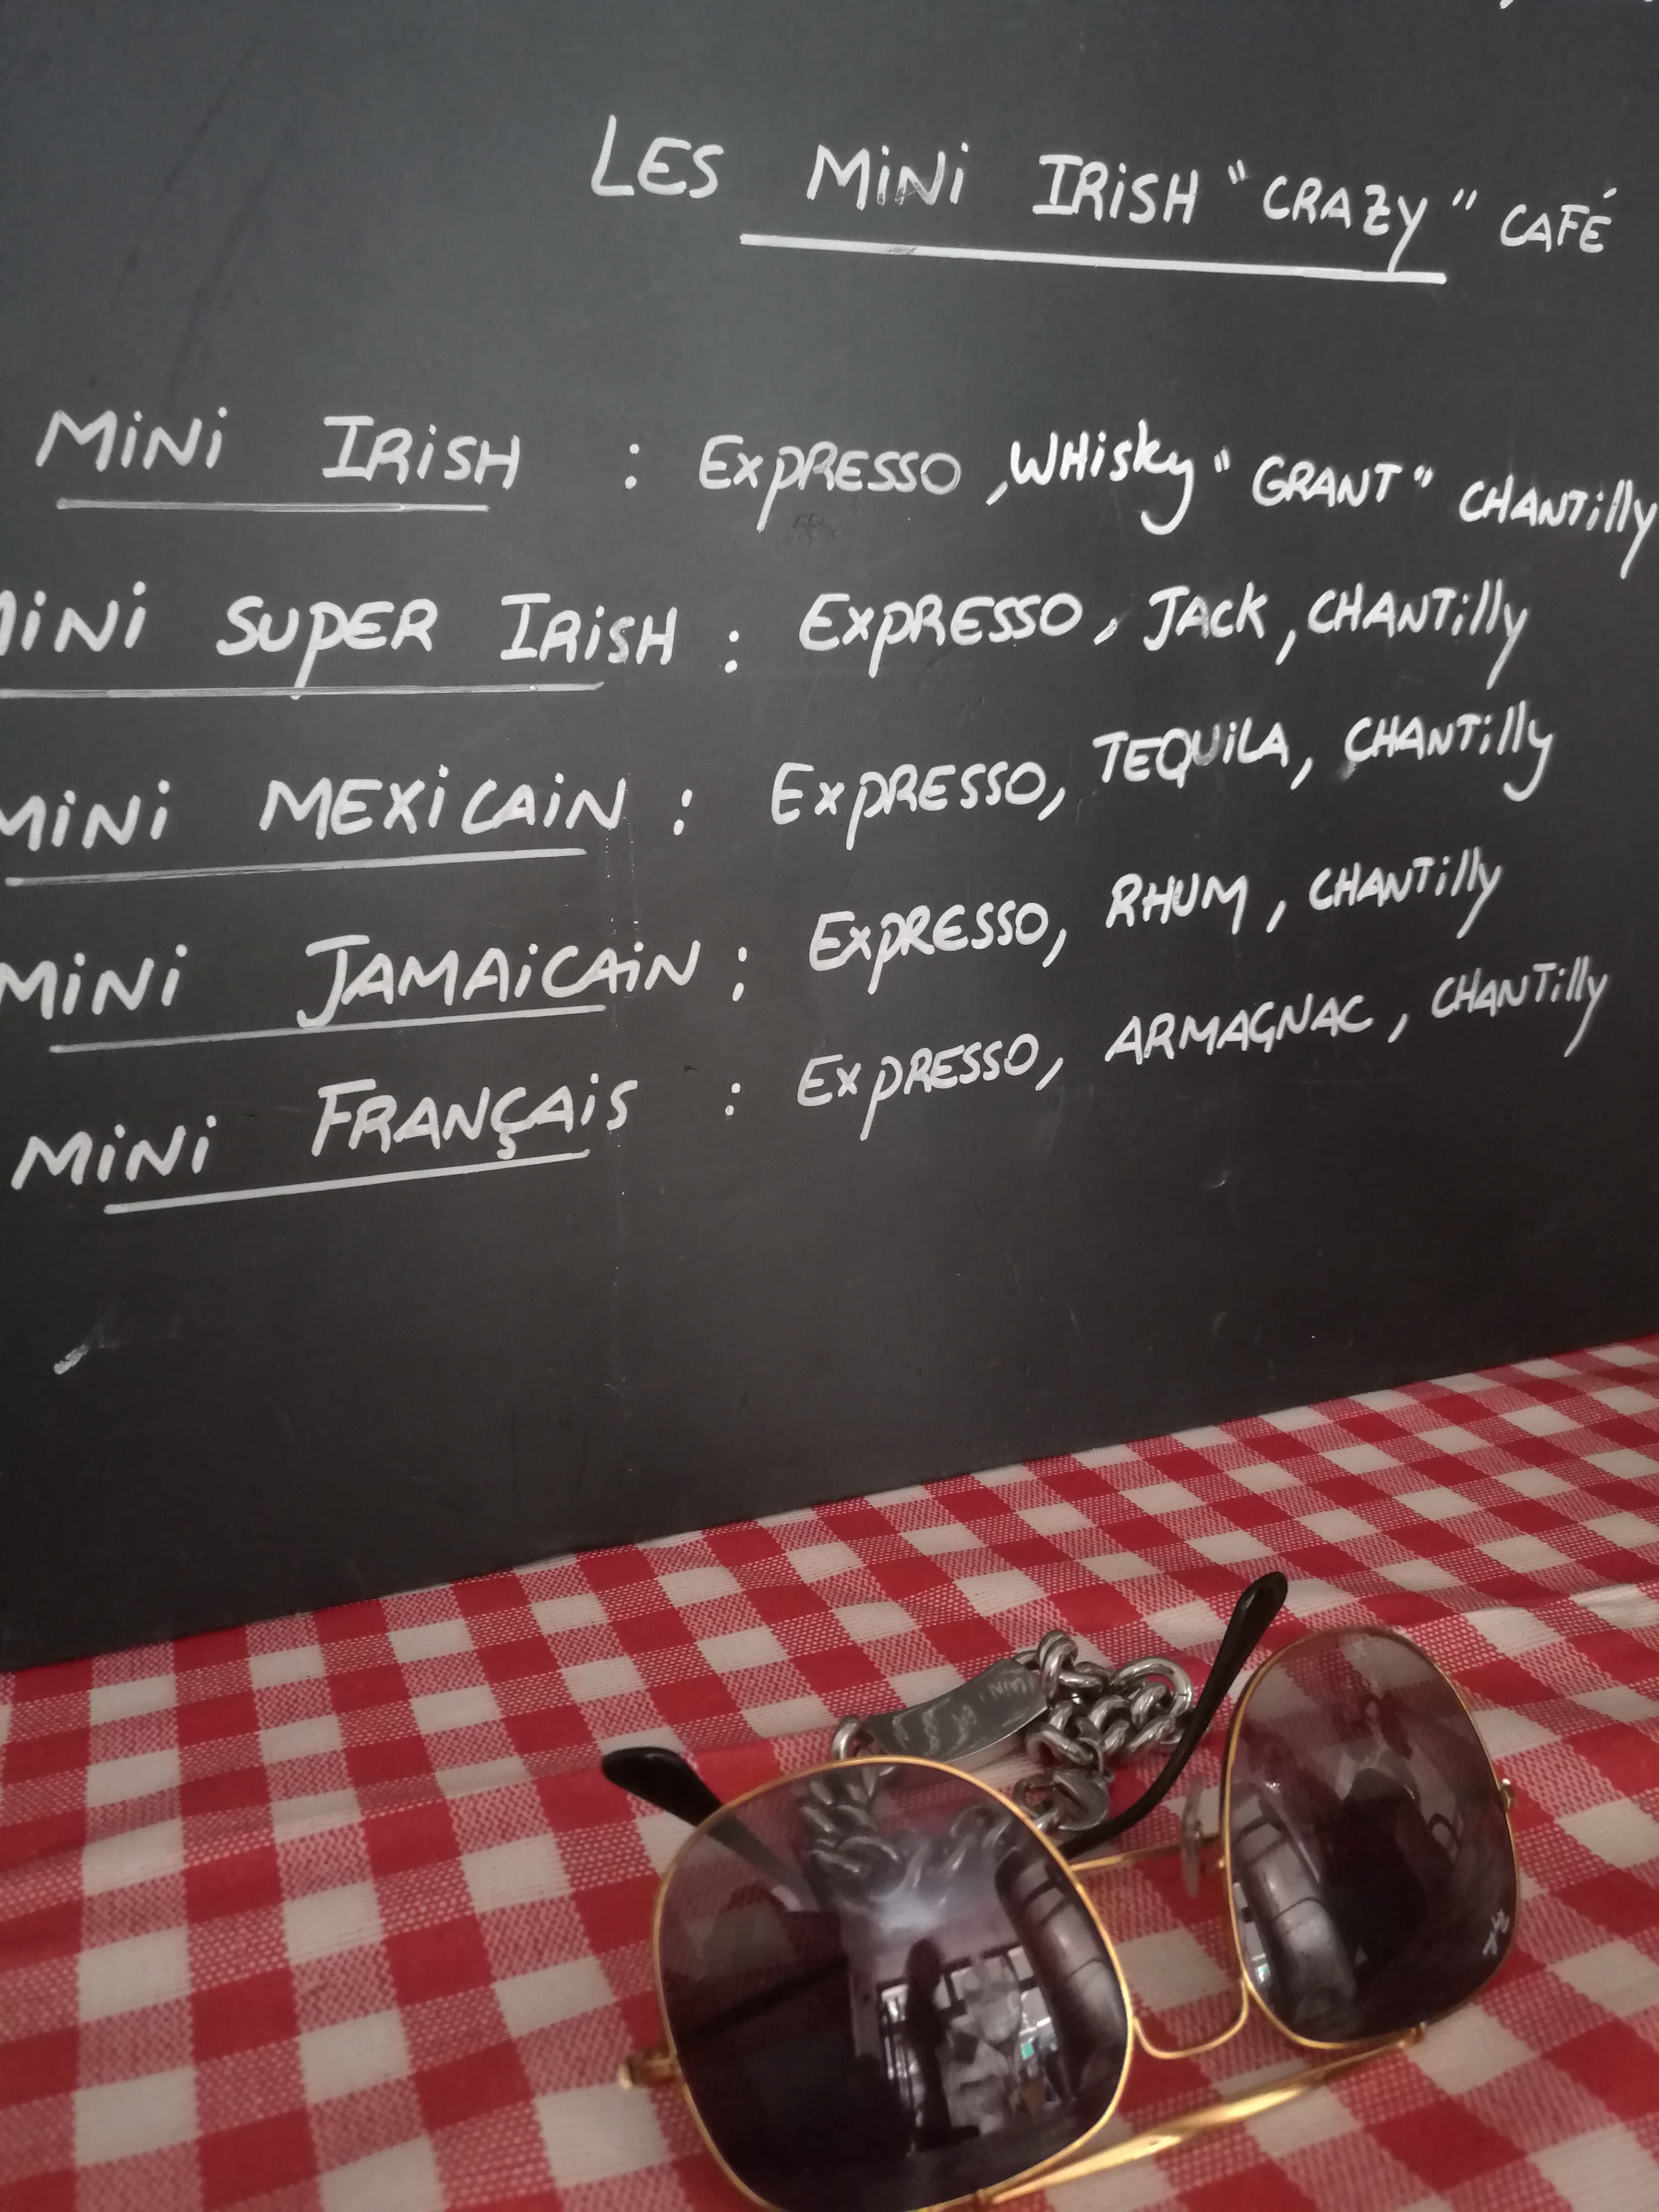 LES MiNi IRiSH "CRAZY" CAFÉ
MiNi IRiSH : EXPRESSO, WHisky "GRANT" CHANTilly
MiNi SUPER IRiSH : EXPRESSO, JACK, CHANTilly
MiNi MEXiCAiN : EXPRESSO, TEQUiLA, CHANTilly
MiNi JAMAiCAiN : EXPRESSO, RHUM, CHANTilly
MiNi FRANÇAiS : EXPRESSO, ARMAGNAC, CHANTilly